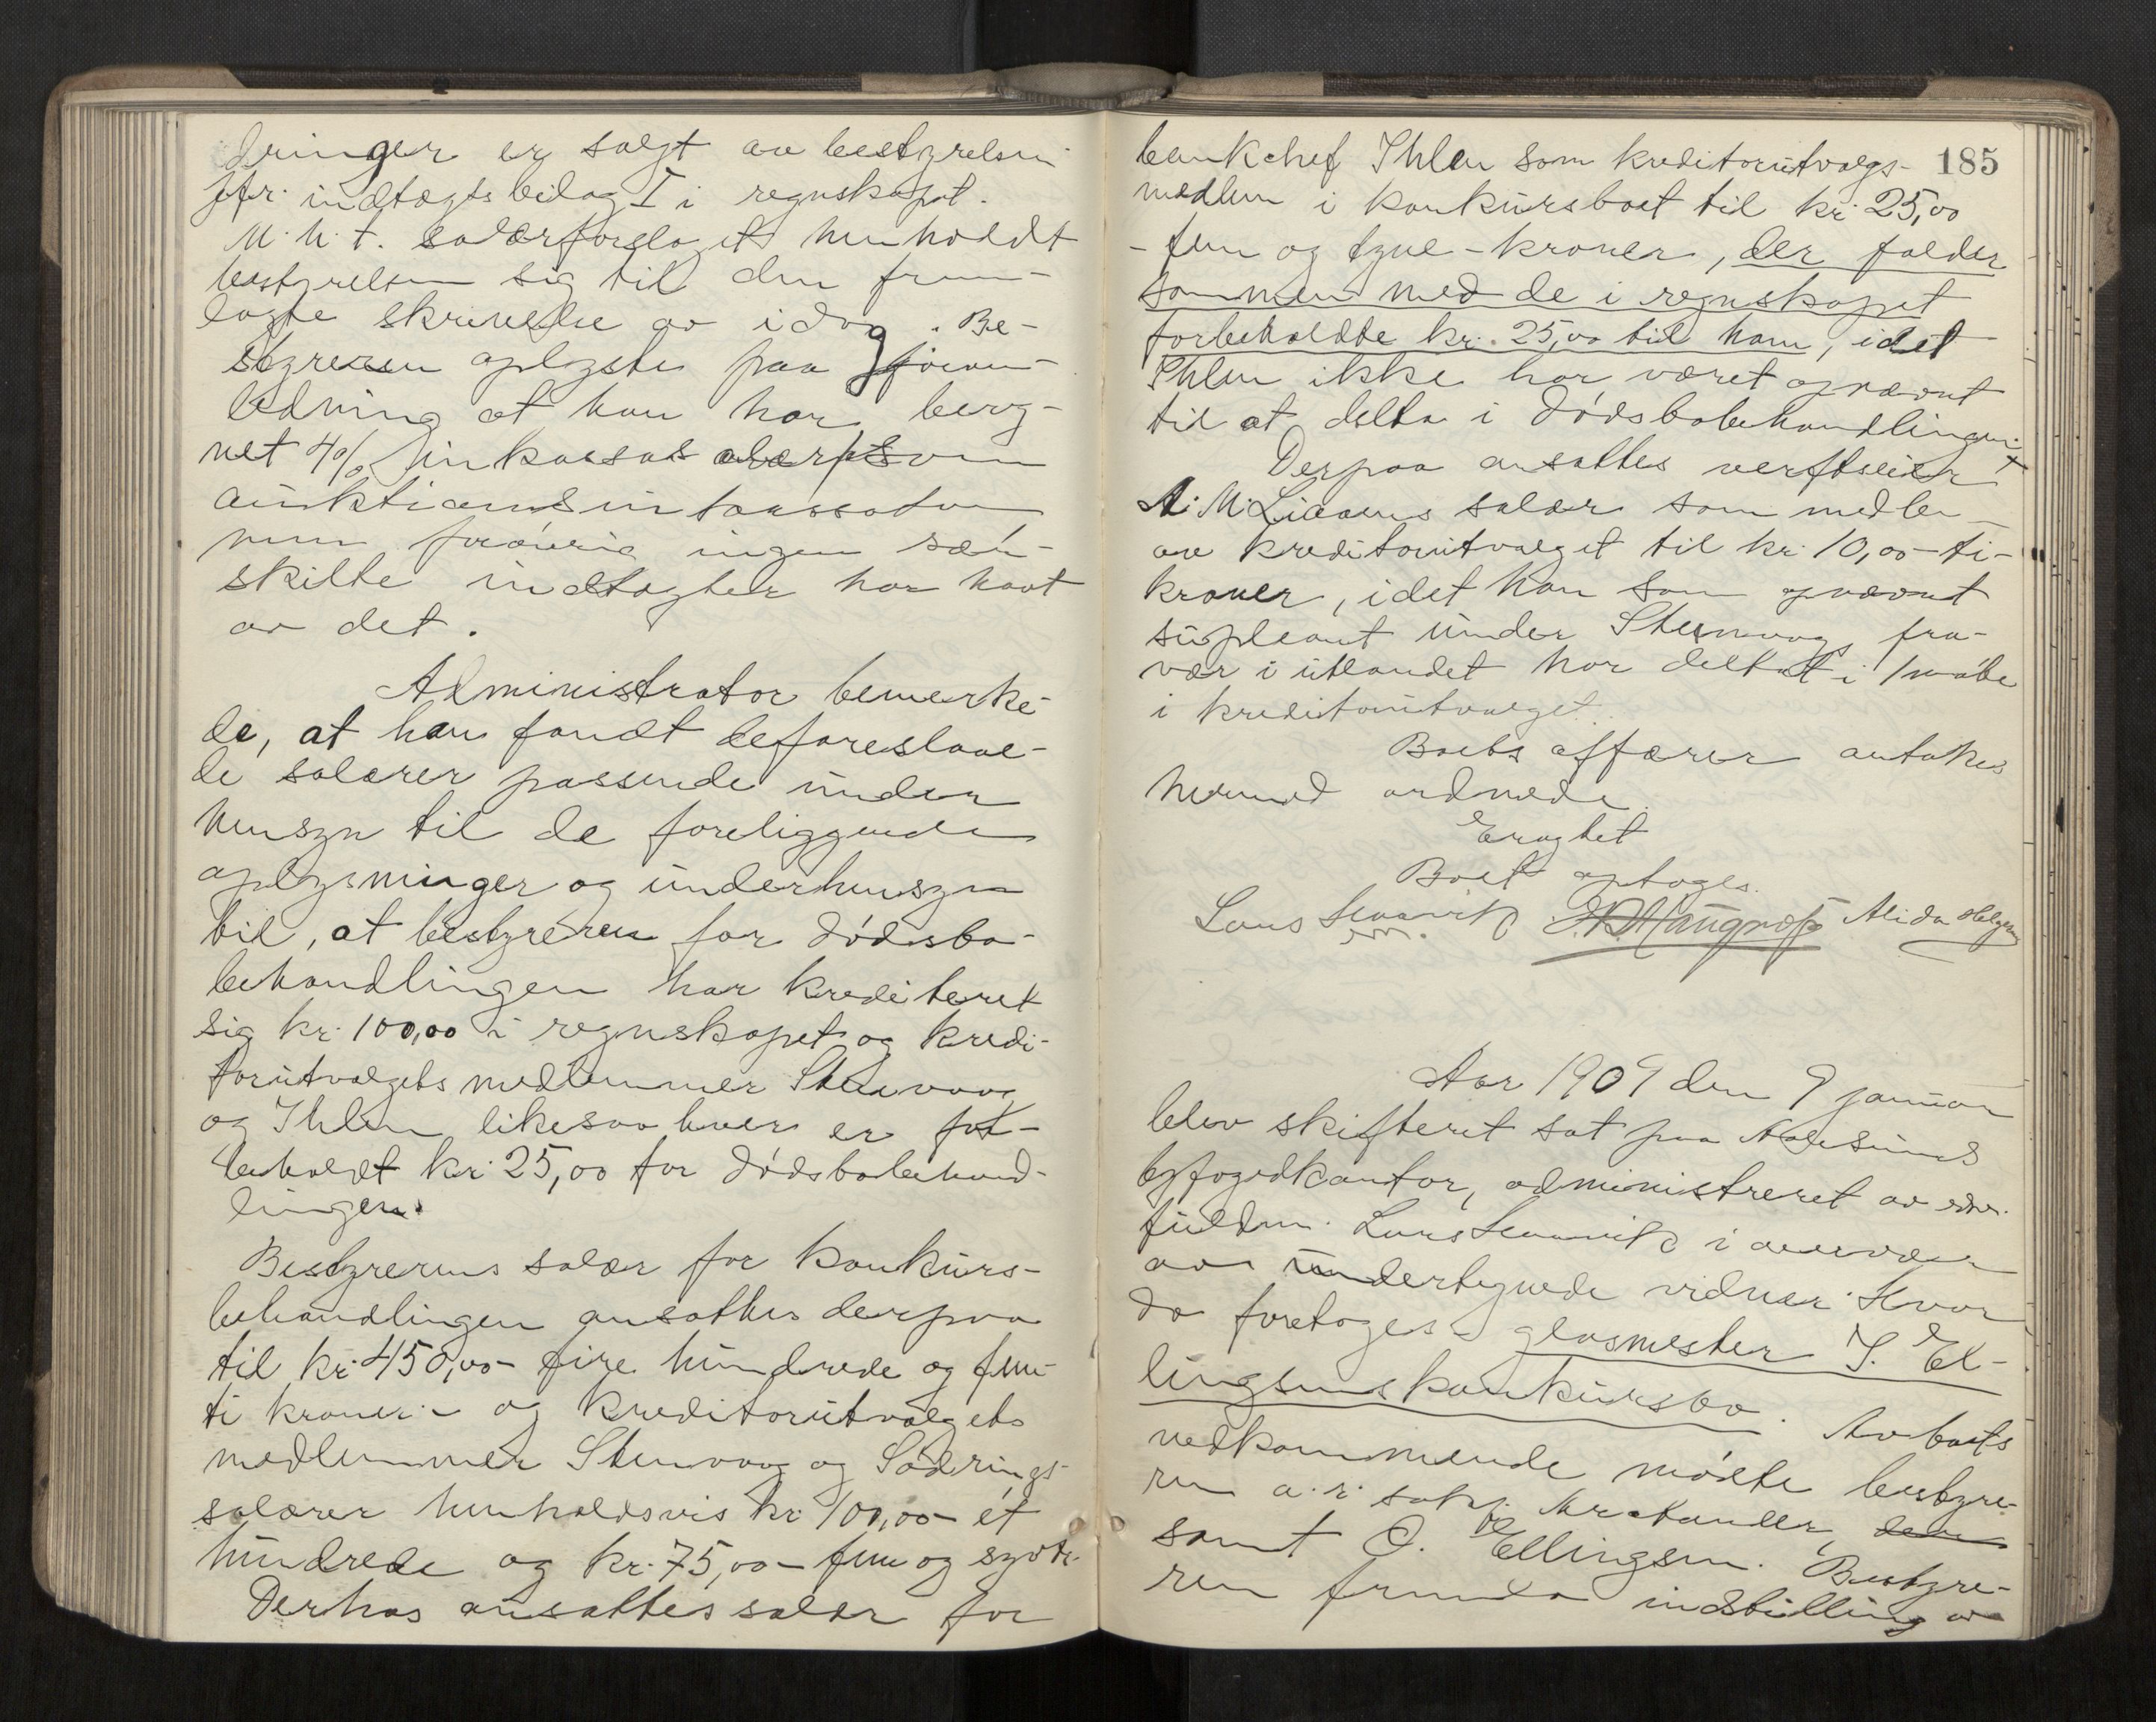 dringer er solgt av bestyrelsen
jfr. indtægtsbilag I i regnskapet.
M. h. t. salærforslaget henholdt
bestyrelsen sig til den frem-
lagte skrivelse av idag. Be-
styreren oplyste paa foran-
ledning at han har bereg-
net 4% inkassosalær som
auktionsinkassator
men forøvrig ingen sær-
skilte indtægter har havt
av det.
Administrator bemerke-
de, at han fandt de foreslaae-
de salærer passende under
hensyn til de foreliggende
oplysninger og under hensyn
til, at bestyreren for dødsbo-
behandlingen har krediteret
sig kr. 100,00 i regnskapet og kredi-
torutvalgets medlemmer Stenvaag
og Ihlen likesaa hver er for-
beholdt kr. 25,00 for dødsbobehand-
lingen.
Bestyrerens salær for konkurs-
behandlingen ansattes derpaa
til kr. 450,00 - fire hundrede og fem-
ti kroner - og kreditorutvalgets
medlemmer Stenvaag og Sødrings
salærer henholdsvis kr. 100,00 - et
hundrede og kr. 75,00 - fem og sytti.
Derhos ansattes salær for
185
bankchef Ihlen som kreditorutvalgs-
medlem i konkursboet til kr. 25,00
- fem og tyve - kroner, der falder
sammen med de i regnskapet
forbeholdte kr. 25,00 til ham, idet
Ihlen ikke har været opnævnt
til at delta i dødsbobehandlingen.
Derpaa ansattes verftseier
A. M. Liaaens salær som medlem
av kreditorutvalget til kr. 10,00 - ti -
kroner, idet han som opnævnt
supleant under Stenvaags fra-
vær i utlandet har deltat i 1 møte
i kreditorutvalget.
Boets affærer antokes
hermed ordnede.
Eragtet
Boet optages.
Lars Alida Helgesen
Aar 1909 den 9 januar
blev skifteret sat paa Aalesunds
byfogedkontor, administreret av edsv.
fuldm. Lars i overvær
av undertegnede vidner. Hvor
da foretoges: glasmester I. El-
lingsens konkursbo. Av boets
vedkommende møtte bestyre-
ren o.r. sakf. Krakander, den
samt O. Ellingsen. Bestyre-
ren fremla indstilling av